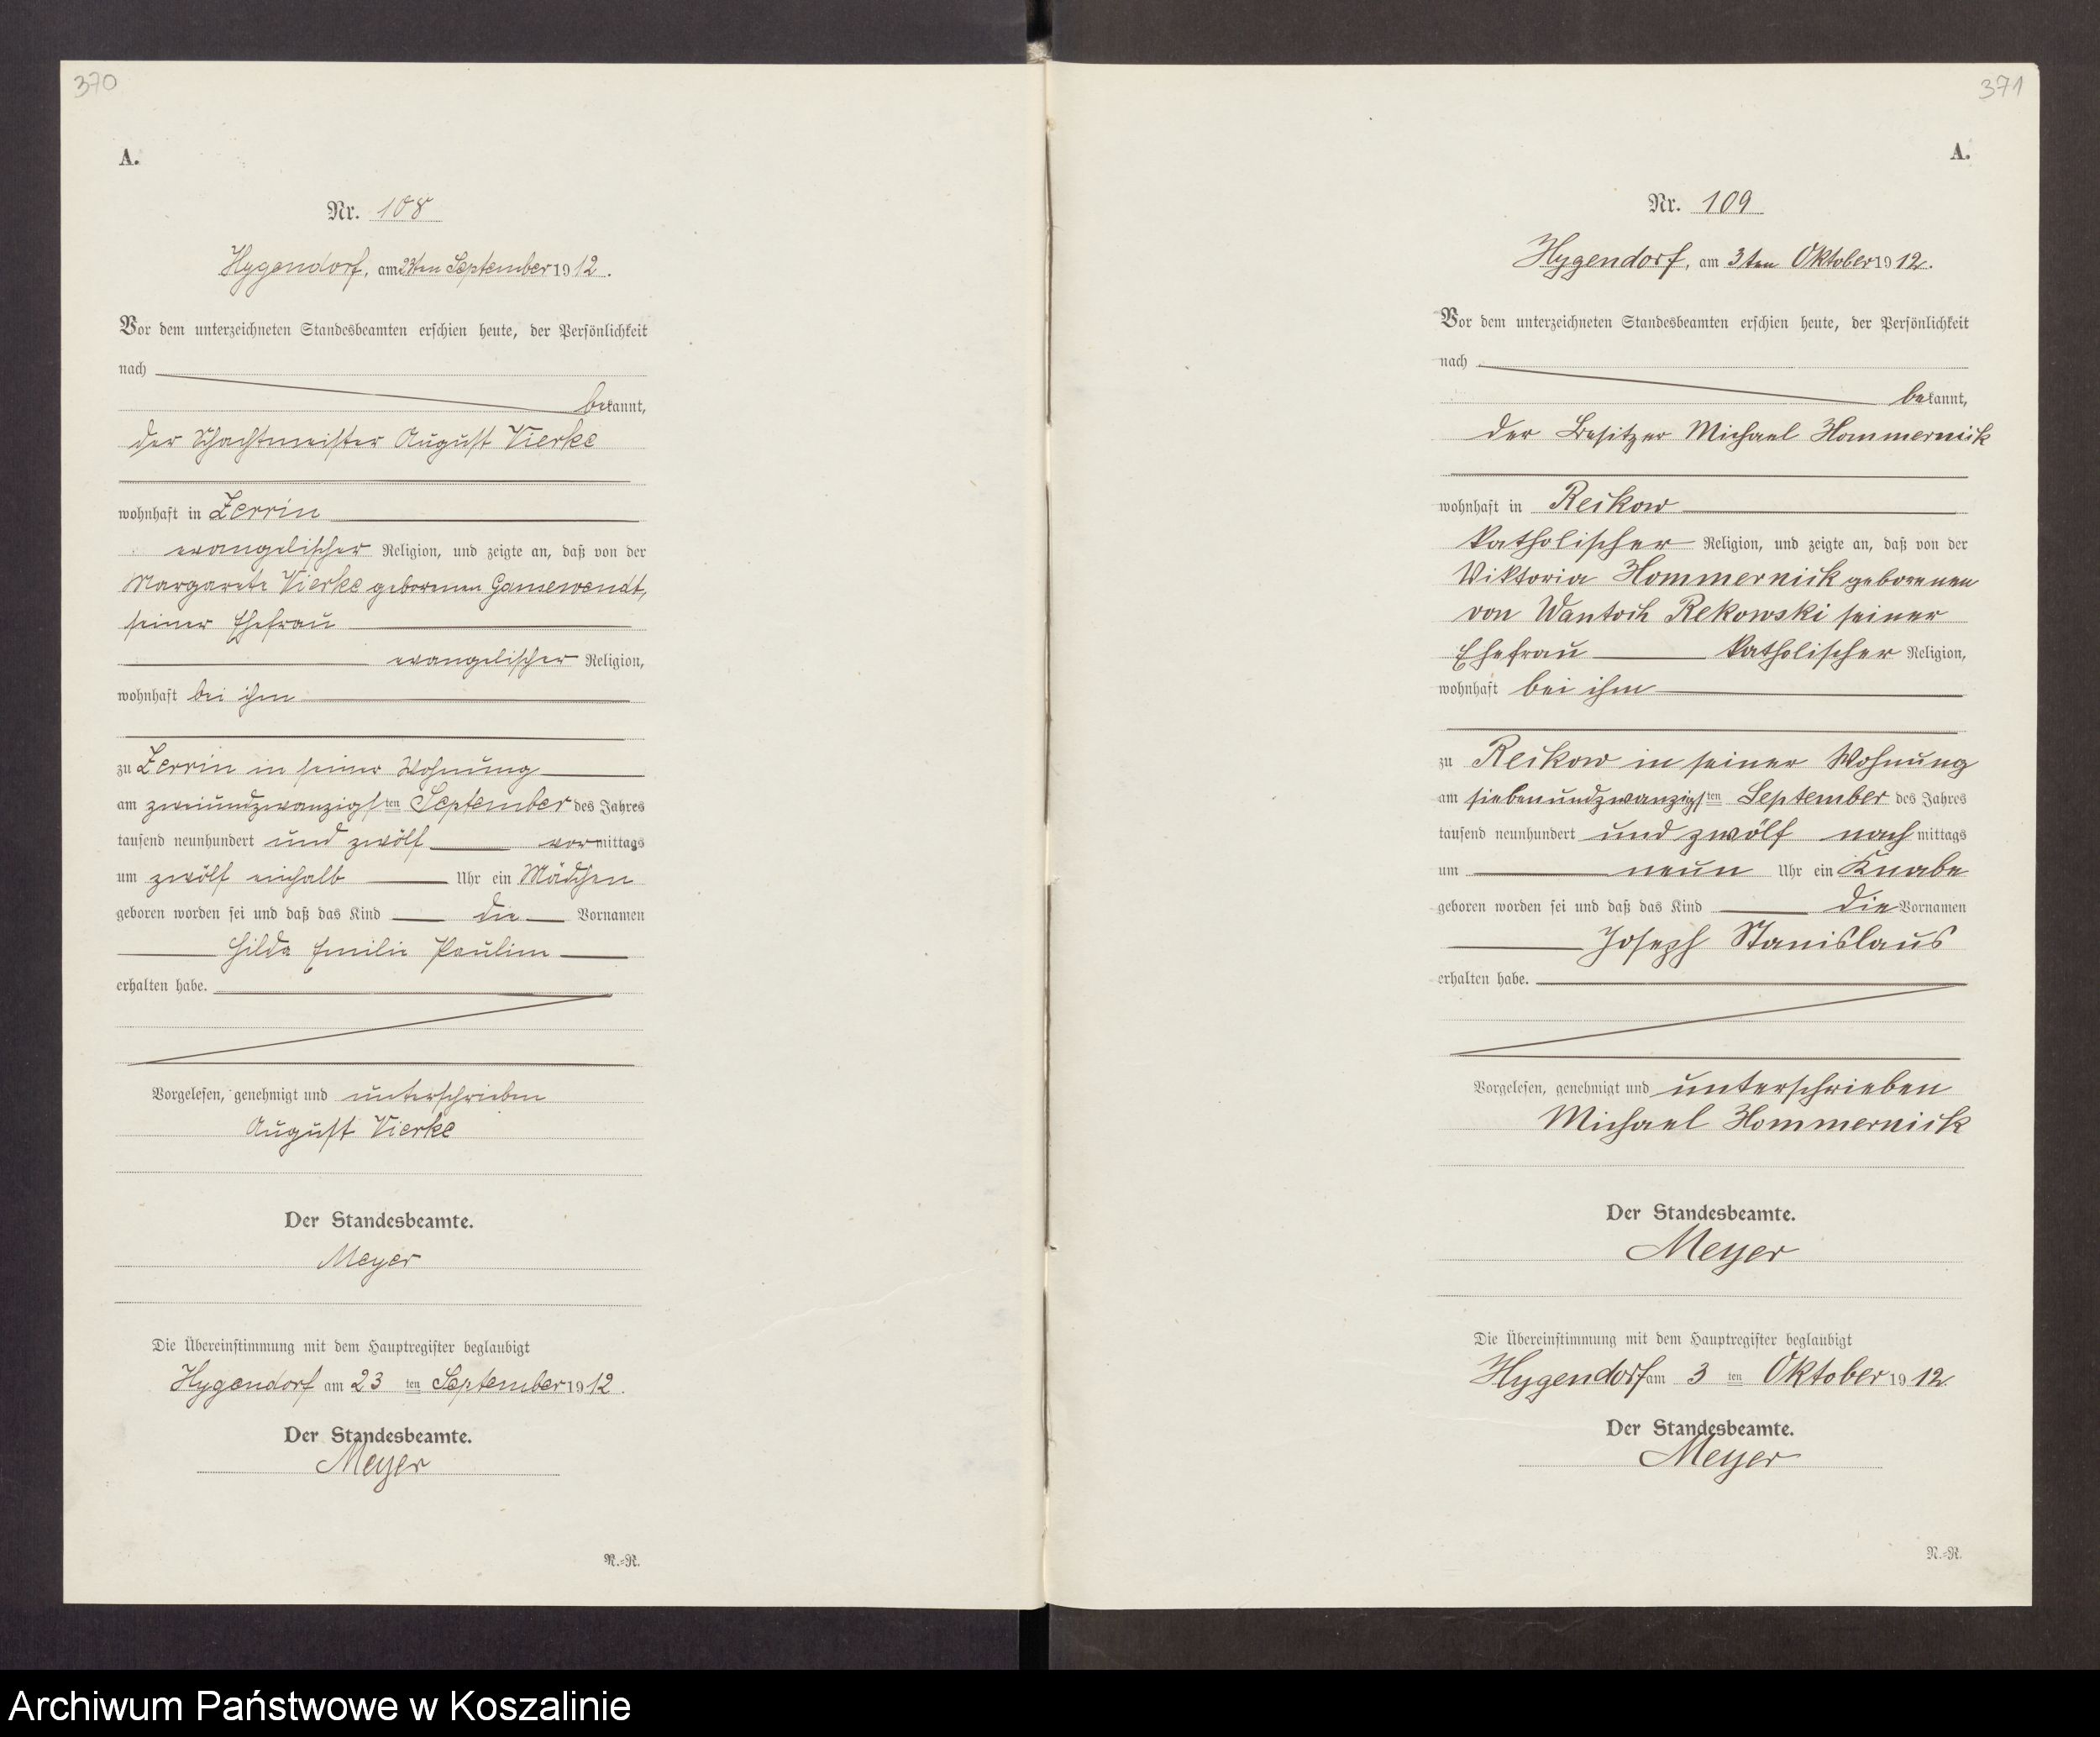 370
A.
Nr. 108
Hygendorf, am 23ten September 1912.
Vor dem unterzeichneten Standesbeamten erschien heute, der Persönlichkeit
nach
bekannt,
der Schachtmeister August Vierke
wohnhaft in Zerrin
evangelischer Religion, und zeigte an, daß von der
Margarete Vierke geborenen Gansewendt,
seiner Ehefrau
evangelischer Religion,
wohnhaft bei ihm
zu Zerrin in seiner Wohnung
am zweiundzwanzigsten September des Jahres
tausend neunhundert und zwölf vormittags
um zwölf einhalb Uhr ein Mädchen
geboren worden sei und daß das Kind die Vornamen
Hilda Emilie Pauline
erhalten habe.
Vorgelesen, genehmigt und unterschrieben
August Vierke
Der Standesbeamte.
Meyer
Die Übereinstimmung mit dem Hauptregister beglaubigt
Hygendorf am 23 ten September 1912.
Der Standesbeamte.
Meyer
N.-R.
371
A.
Nr. 109
Hygendorf, am 3ten Oktober 1912.
Vor dem unterzeichneten Standesbeamten erschien heute, der Persönlichkeit
nach
bekannt,
der Besitzer Michael Hommernick
wohnhaft in Reikow
katholischer Religion, und zeigte an, daß von der
Viktoria Hommernick geborenen
von Wantoch Rekowski seiner
Ehefrau katholischer Religion,
wohnhaft bei ihm
zu Reikow in seiner Wohnung
am siebenundzwanzigsten September des Jahres
tausend neunhundert und zwölf nachmittags
um neun Uhr ein Knabe
geboren worden sei und daß das Kind die Vornamen
Joseph Stanislaus
erhalten habe.
Vorgelesen, genehmigt und unterschrieben
Michael Hommernick
Der Standesbeamte.
Meyer
Die Übereinstimmung mit dem Hauptregister beglaubigt
Hygendorf am 3 ten Oktober 1912.
Der Standesbeamte.
Meyer
N.-R.
Archiwum Państwowe w Koszalinie